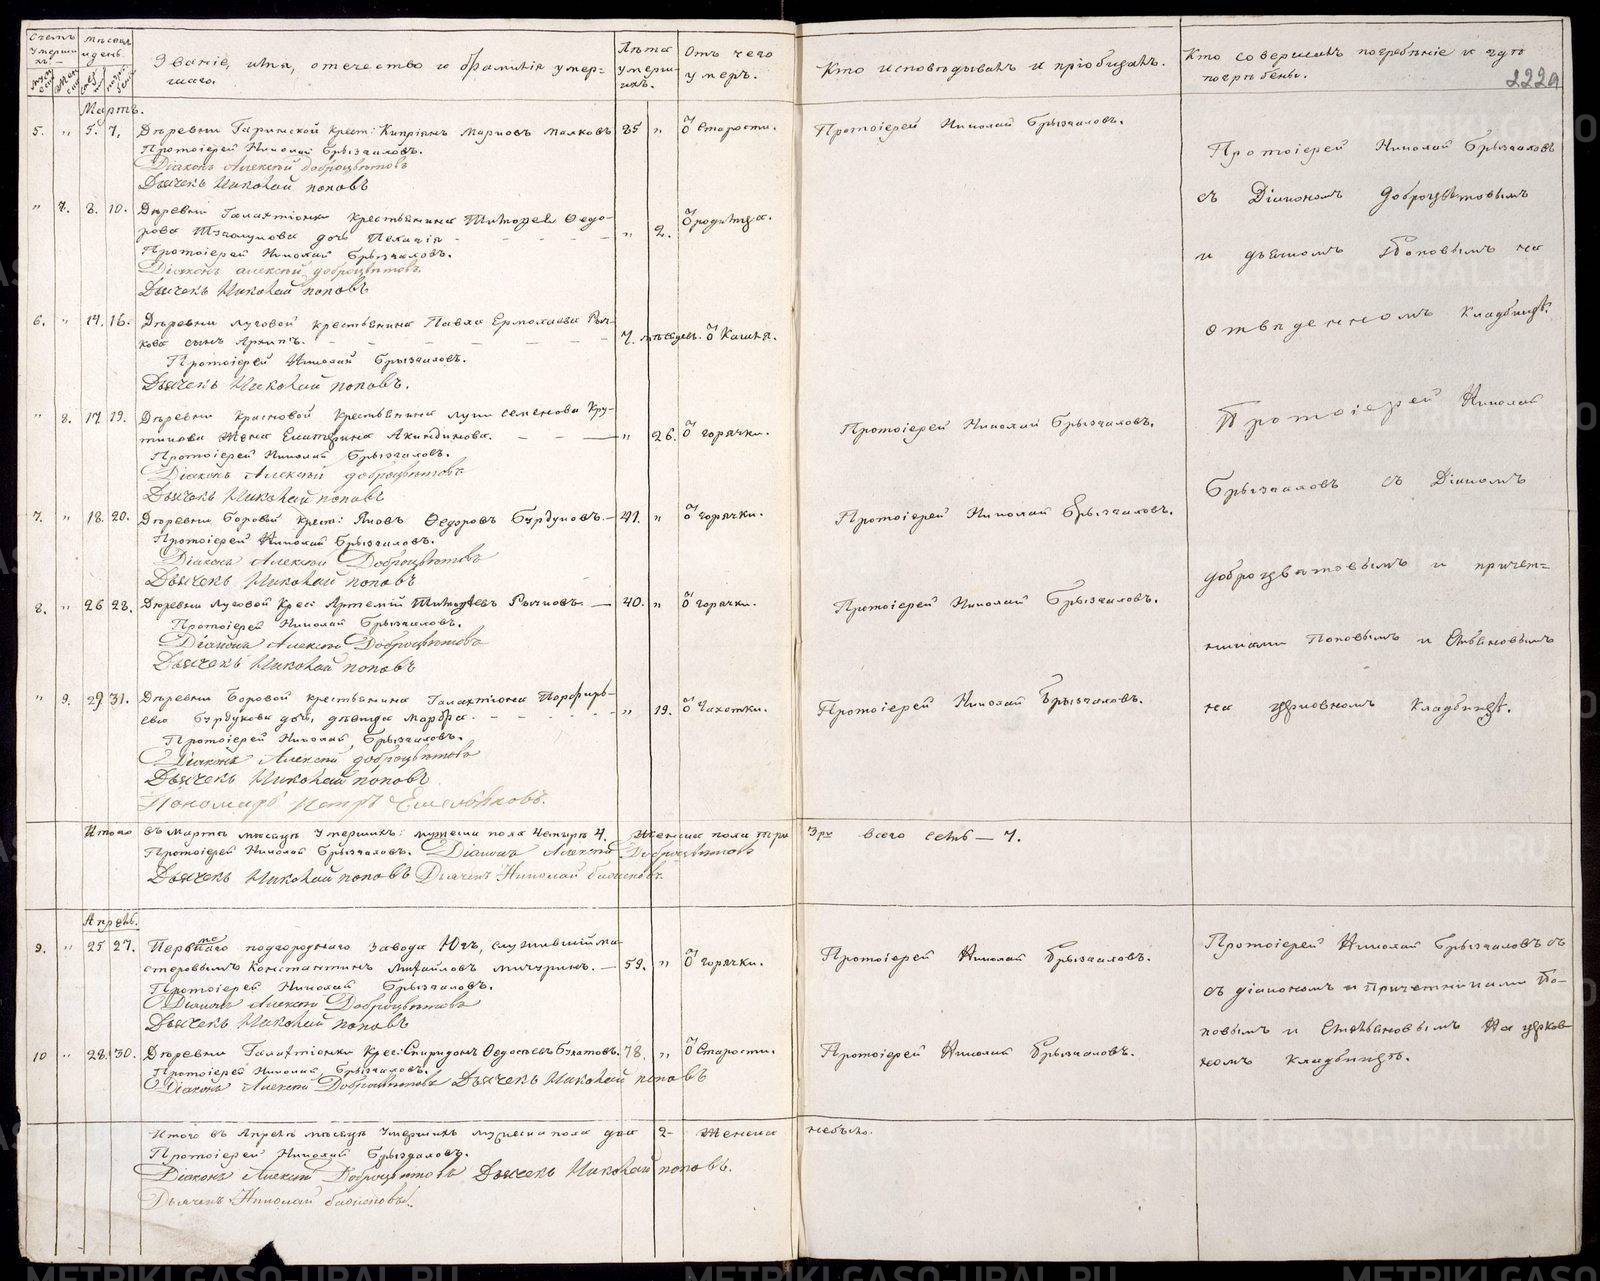 Счетъ умерши хъ.
Мѣсяцъ и день.
Званіе, имя, отечество и фамилія умер-
шаго.
Лѣта умерш ихъ.
Отъ чего умеръ.
Кто исповѣдывалъ и пріобщалъ.
Кто совершалъ погребеніе и гдѣ
погребены.
222а
Мартъ.
5. " 5. 7. Деревни Гаринской Крест: Кипріянъ Марковъ Малковъ 85 " Старости. Протоіерей Николай Брызгаловъ.
Протоіерей Николай Брызгаловъ.
Діаконъ Алексѣй Доброцвѣтовъ
Дьячекъ Николай поповъ
Протоіерей Николай Брызгаловъ
съ Діакономъ Доброцвѣтовымъ
и дьячкомъ Поповымъ на
отведенномъ Кладбищѣ.
" 7. 8. 10. Деревни Галактіонки крестьянина Тимофея Ѳедо-
рова дочь Пелагія " 2. родимца.
Протоіерей Николай Брызгаловъ.
Діаконъ алексѣй доброцвѣтовъ
Дьячекъ Николай поповъ
6. " 14. 16. Деревни луговой крестьянина Павла Ермолаева Рыч-
кова сынъ Архипъ. 7. мѣсяцевъ. Кашля.
Протоіерей Николай Брызгаловъ.
Дьячекъ Николай поповъ.
" 8. 17 19. Деревни Красновой крестьянина луки семенова Кру-
тикова жена Екатерина Акиндинова. " 26. горячки. Протоіерей Николай Брызгаловъ.
Протоіерей Николай Брызгаловъ.
Діаконъ Алексѣй доброцвѣтовъ
Дьячекъ Николай поповъ
Протоіерей Николай
Брызгаловъ съ Діакомъ
доброцвѣтовымъ и причет=
никами Поповымъ и
на церковномъ кладбищѣ.
7. " 18. 20. Деревни Боровой крест: Яковъ Ѳедоровъ Бурдуковъ. 41. " горячки. Протоіерей Николай Брызгаловъ.
Протоіерей Николай Брызгаловъ.
Діаконъ Алексѣй Доброцвѣтовъ
Дьячекъ Николай поповъ
8. " 26 28. Деревни луговой Крес: Артемій Тимофѣевъ Рычковъ. 40. " горячки. Протоіерей Николай Брызгаловъ.
Протоіерей Николай Брызгаловъ.
Діаконъ Алексѣй Доброцвѣтовъ
Дьячекъ Николай поповъ
" 9. 29 31. Деревни Боровой крестьянина Галактіона Порфирь-
ева Бурдукова дочь, дѣвица Марфа. " 19. Чахотки. Протоіерей Николай Брызгаловъ.
Протоіерей Николай Брызгаловъ.
Діаконъ Алексѣй доброцвѣтовъ
Дьячекъ Николай поповъ
Пономарь Петръ
Итого въ мартѣ мѣсяцѣ умершихъ: мужеска пола четыре 4. Женска пола три 3 всего семь — 7.
Протоіерей Николай Брызгаловъ. Діаконъ Алексѣй Доброцвѣтовъ
Дьячекъ Николай поповъ Дьячекъ Николай
Апрѣль.
9. " 25 27. подгороднаго завода Югъ, служившій ма-
стеровымъ Константинъ Михайловъ Мичуринъ. 59. " горячки. Протоіерей Николай Брызгаловъ.
Протоіерей Николай Брызгаловъ.
Діаконъ Алексѣй Доброцвѣтовъ
Дьячекъ Николай поповъ
Протоіерей Николай Брызгаловъ съ
съ діакономъ и Причетниками По-
повымъ и На церков-
номъ кладбищѣ.
10 " 28. 30. Деревни Галактіонки Крес: Спиридонъ Ѳедосѣевъ Булатовъ. 78. " Старости. Протоіерей Николай Брызгаловъ.
Протоіерей Николай Брызгаловъ.
Діаконъ Алексѣй Доброцвѣтовъ Дьячекъ Николай поповъ
Итого въ Апрѣлѣ мѣсяцѣ умершихъ мужеска пола два 2- женска небыло.
Протоіерей Николай Брызгаловъ.
Діаконъ Алексѣй Доброцвѣтовъ Дьячекъ Николай поповъ.
Дьячекъ Николай
METRIKI.GASO-URAL.RU